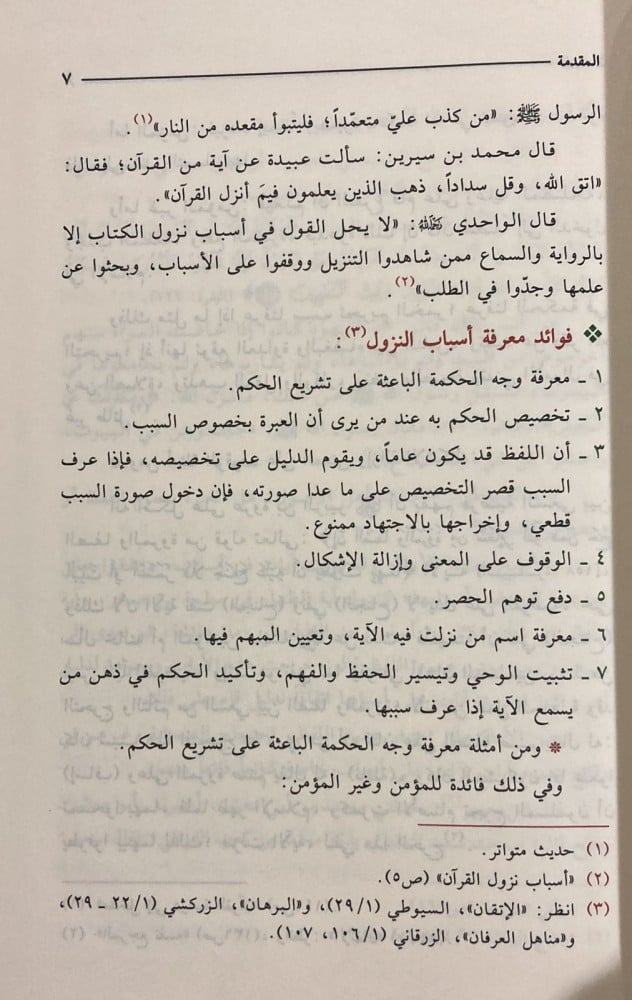 المقدمة ٧
الرسول ﷺ: «من كذب عليّ متعمّداً؛ فليتبوأ مقعده من النار»(١).
قال محمد بن سيرين: سألت عبيدة عن آية من القرآن؛ فقال:
«اتق الله، وقل سداداً، ذهب الذين يعلمون فيمَ أنزل القرآن».
قال الواحدي رحمه الله: «لا يحل القول في أسباب نزول الكتاب إلا
بالرواية والسماع ممن شاهدوا التنزيل ووقفوا على الأسباب، وبحثوا عن
علمها وجدّوا في الطلب»(٢).
❖ فوائد معرفة أسباب النزول(٣):
١ ـ معرفة وجه الحكمة الباعثة على تشريع الحكم.
٢ ـ تخصيص الحكم به عند من يرى أن العبرة بخصوص السبب.
٣ ـ أن اللفظ قد يكون عاماً، ويقوم الدليل على تخصيصه، فإذا عرف
السبب قصر التخصيص على ما عدا صورته، فإن دخول صورة السبب
قطعي، وإخراجها بالاجتهاد ممنوع.
٤ ـ الوقوف على المعنى وإزالة الإشكال.
٥ ـ دفع توهم الحصر.
٦ ـ معرفة اسم من نزلت فيه الآية، وتعيين المبهم فيها.
٧ ـ تثبيت الوحي وتيسير الحفظ والفهم، وتأكيد الحكم في ذهن من
يسمع الآية إذا عرف سببها.
* ومن أمثلة معرفة وجه الحكمة الباعثة على تشريع الحكم.
وفي ذلك فائدة للمؤمن وغير المؤمن:
(١) حديث متواتر.
(٢) «أسباب نزول القرآن» (ص٥).
(٣) انظر: «الإتقان»، السيوطي (٢٩/١)، و«البرهان»، الزركشي (٢٢/١ ـ ٢٩)،
و«مناهل العرفان»، الزرقاني (١٠٦/١، ١٠٧).